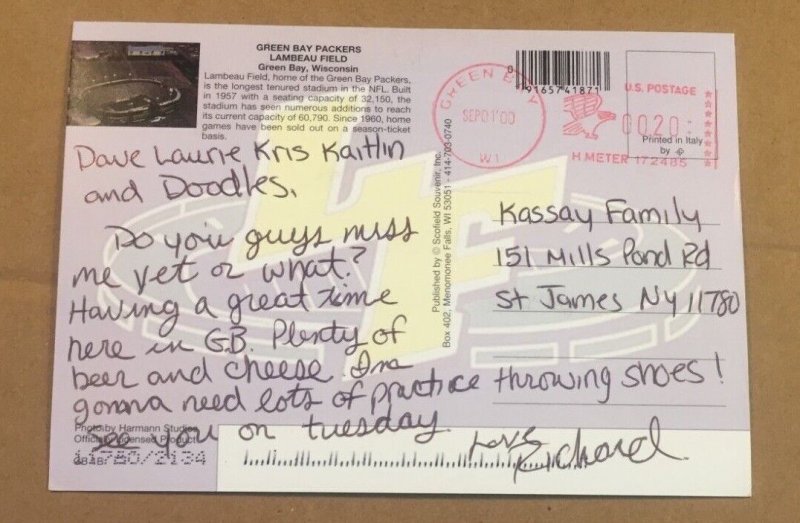 GREEN BAY PACKERS
LAMBEAU FIELD
Green Bay, Wisconsin
Lambeau Field, home of the Green Bay Packers,
is the longest tenured stadium in the NFL. Built
in 1957 with a seating capacity of 32,150, the
stadium has seen numerous additions to reach
its current capacity of 60,790. Since 1960, home
games have been sold out on a season-ticket
basis.
Dave Laurie Kris Kaitlin
and Doodles,
Do you guys miss
me yet or what?
Having a great time
here in G.B. Plenty of
beer and cheese. Im
gonna need lots of practice throwing shoes!
see you on tuesday
Love
Richard
Photo by Harmann Studios
Officially Licensed Product
11780/2134
Published by © Scofield Souvenir, Inc.
Box 402, Menomonee Falls, WI 53051 - 414-703-0740
0 9165741871
GREEN BAY
SEP 01'00
WI
U.S. POSTAGE
0020
H METER 172485
Printed in Italy
by
Kassay Family
151 Mills Pond Rd
St James NY 11780